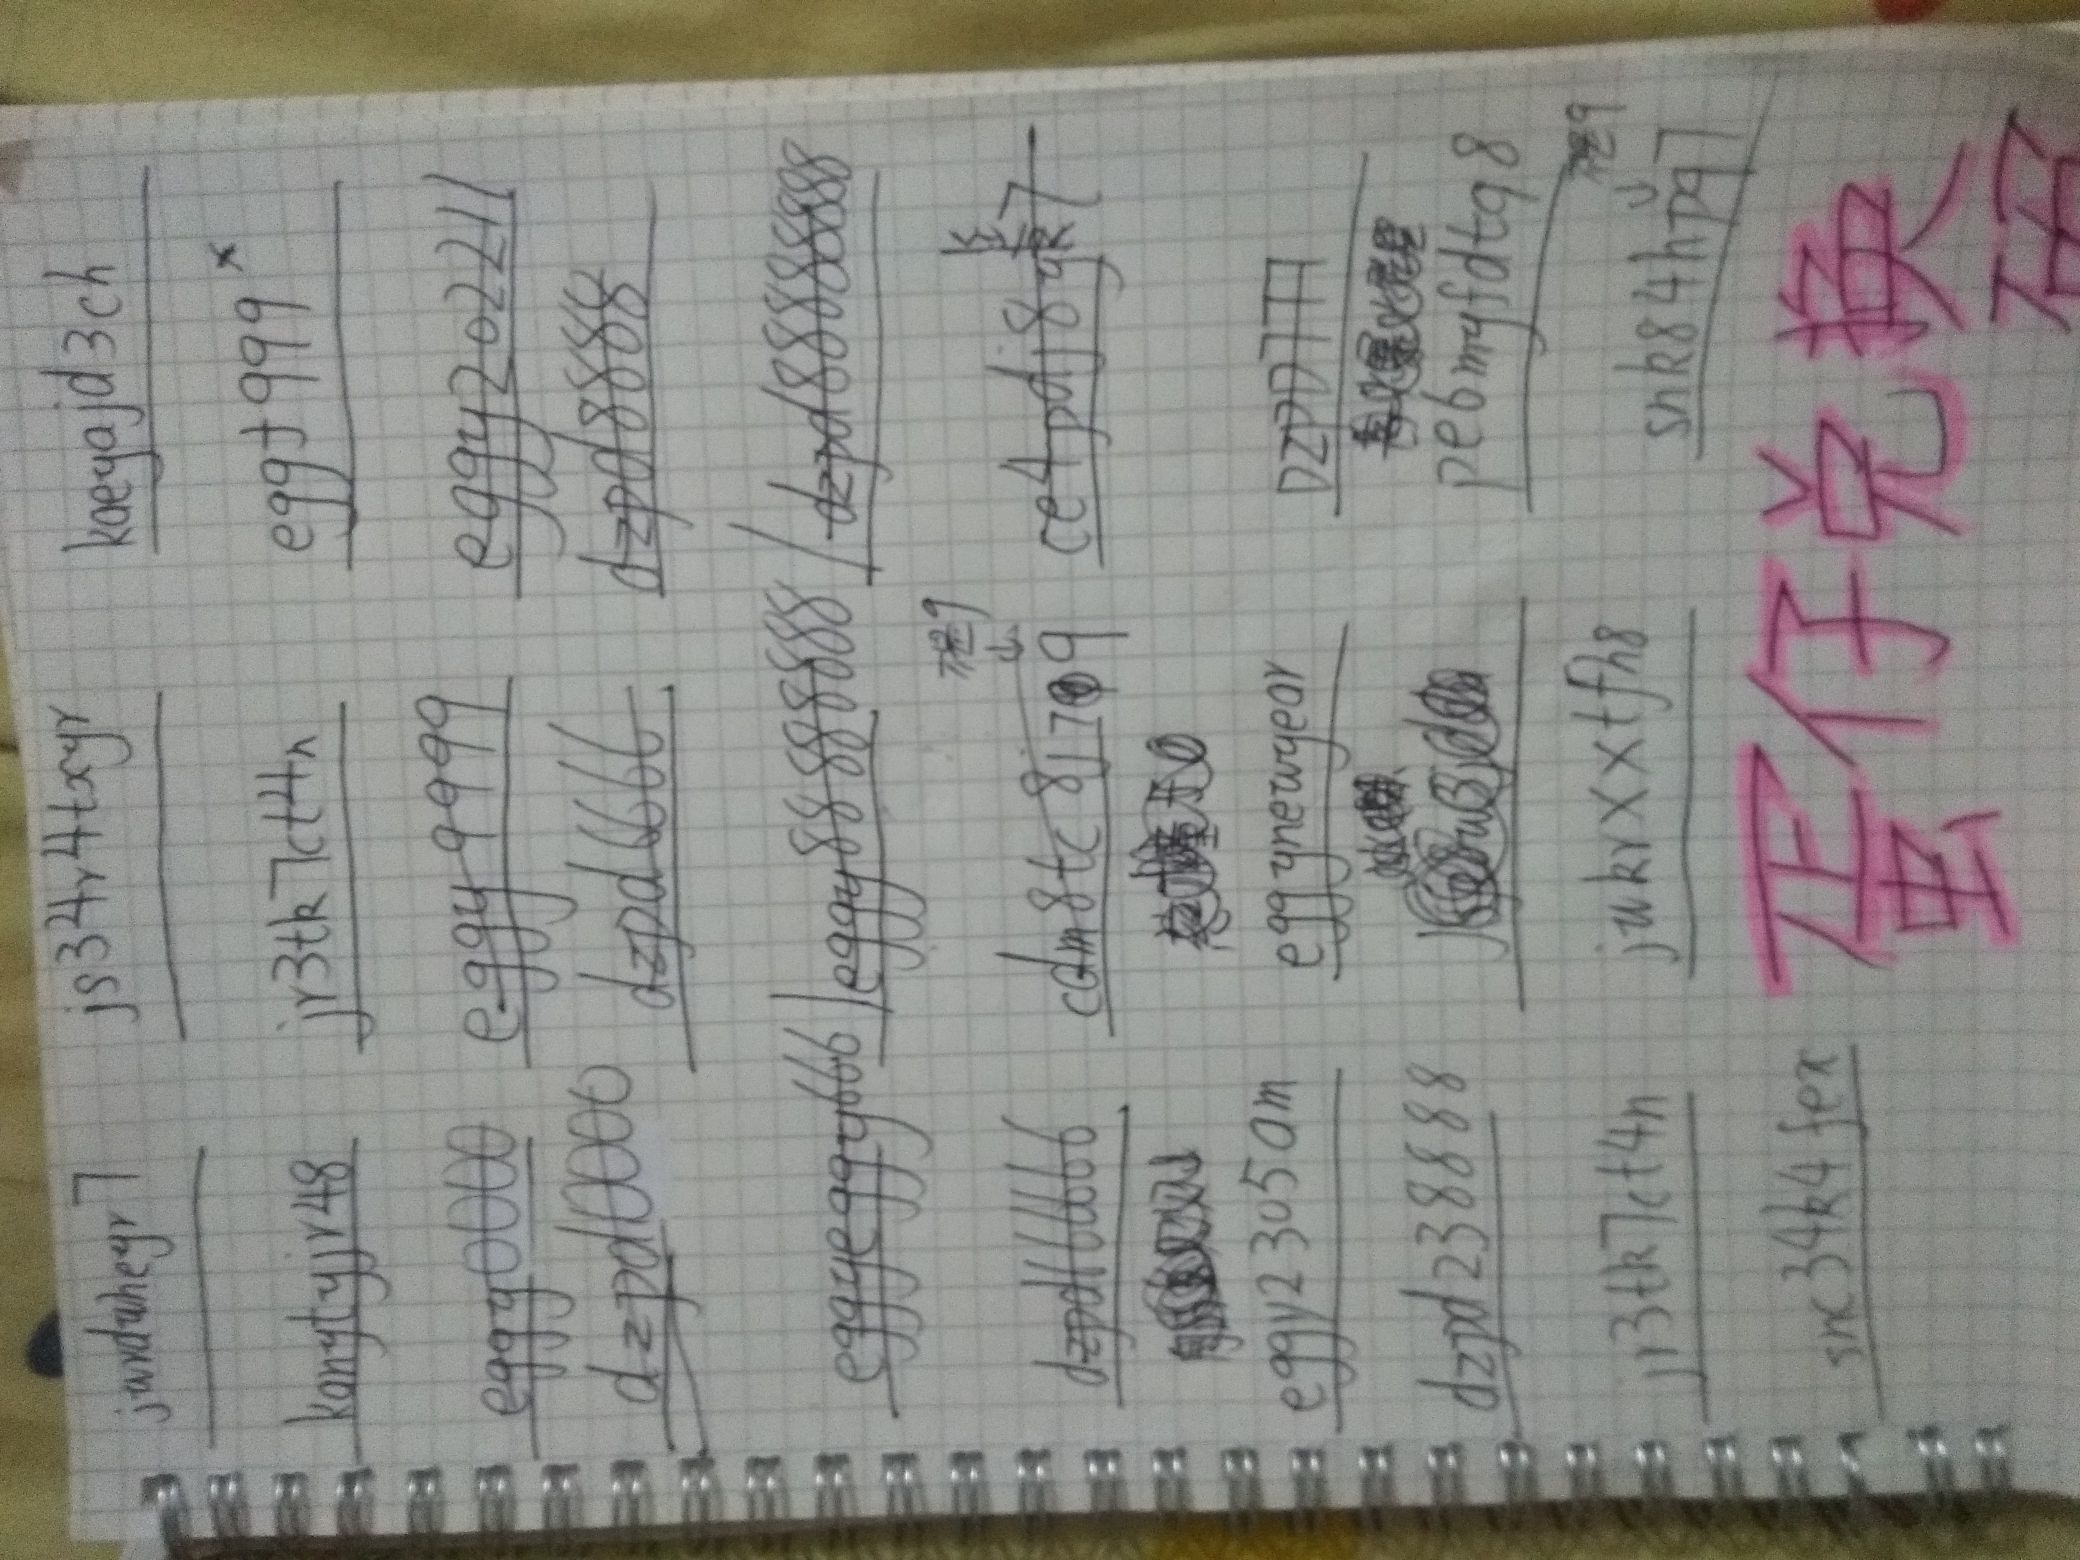 jwrdwheyr7 js34r4txyr kaeyajd3ch
kanytyjr48 jr3tk7ct4n eggt999 x
eggy0000 eggy9999 eggy20211
dzpd10000 dzpd6666 dzpd8888
eggyeggy666 eggy88888888 dzpd88888888
dzpd66666 cdm8tc8j79 ce4pdj8qk7
是9
长
eggy2305am eggynewyear DZPD777
dzpd238888 pebmyfdtq8
jr3tk7ct4n jwkrxxtfh8 snk84hpq7
是9
snc34k4fex
蛋仔兑换
码